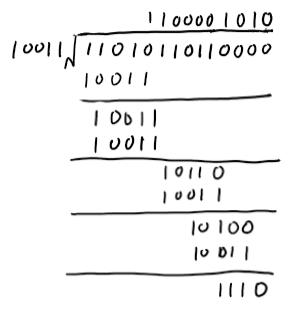 1100001010
10011√11010110110000
10011
10011
10011
10110
10011
10100
10011
1110